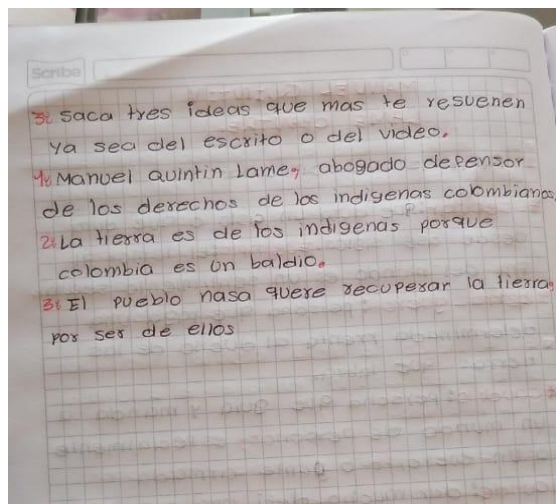 Scribe
3: Saca tres ideas que mas te resuenen
ya sea del escrito o del video.
1: Manuel Quintin Lame, abogado defensor
de los derechos de los indigenas colombianos.
2: La tierra es de los indigenas porque
colombia es un baldio.
3: El pueblo nasa quere recuperar la tierra,
por ser de ellos